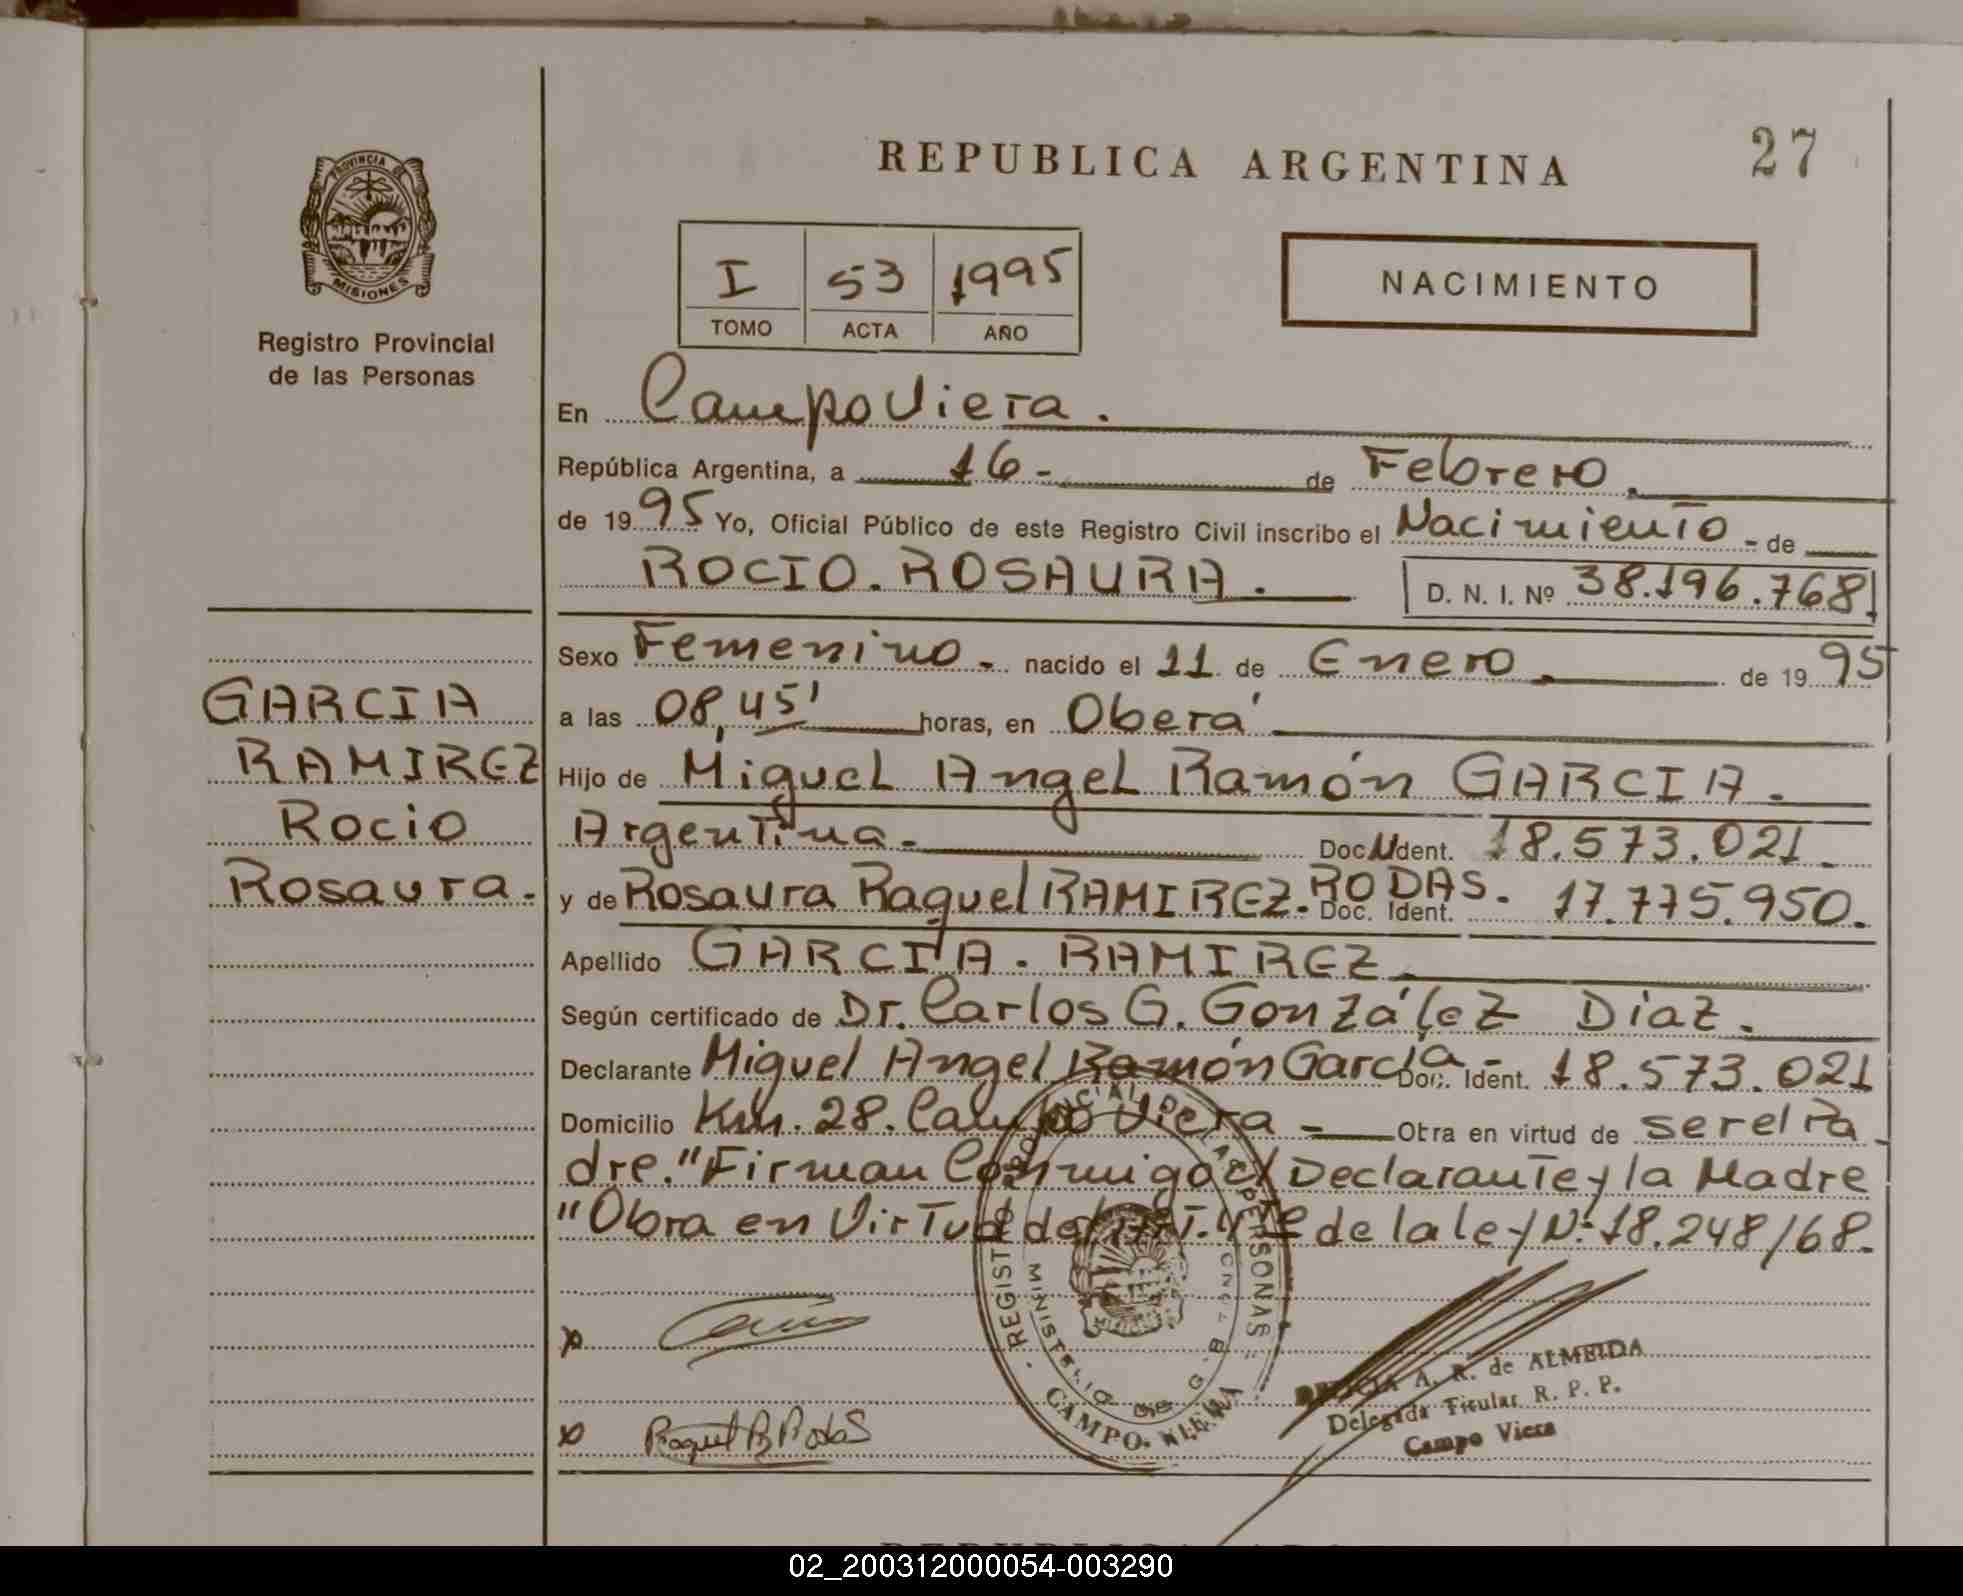 27
REPUBLICA ARGENTINA
PROVINCIA DE
MISIONES
Registro Provincial
de las Personas
I 53 1995
TOMO ACTA AÑO
NACIMIENTO
En Campo Viera.
República Argentina, a 16- de Febrero.
de 1995 Yo, Oficial Público de este Registro Civil inscribo el Nacimiento - de
ROCIO. ROSAURA. D. N. I. Nº 38.196.768.
Sexo Femenino - nacido el 11 de Enero de 1995
a las 08,45' horas, en Oberá
Hijo de Miguel Angel Ramón GARCIA.
Argentina. Doc. Ident. 18.573.021.
y de Rosaura Raquel RAMIREZ. RODAS. Doc. Ident. 17.775.950.
Apellido GARCIA. RAMIREZ
Según certificado de Dr. Carlos G. González Diaz.
Declarante Miguel Angel Ramón García - Doc. Ident. 18.573.021
Domicilio Km. 28. Campo Viera - Obra en virtud de ser el Pa
dre. "Firman Conmigo el Declarante y la Madre
"Obra en Virtud del Art. 4º de la ley Nº 18.248/68.
GARCIA
RAMIREZ
Rocio
Rosaura.
x
x Raquel R Rodas
REGISTRO PROVINCIAL DE LAS PERSONAS
CAMPO VIERA
A. R. de ALMEIDA
Delegada Titular R. P. P.
Campo Viera
02_200312000054-003290